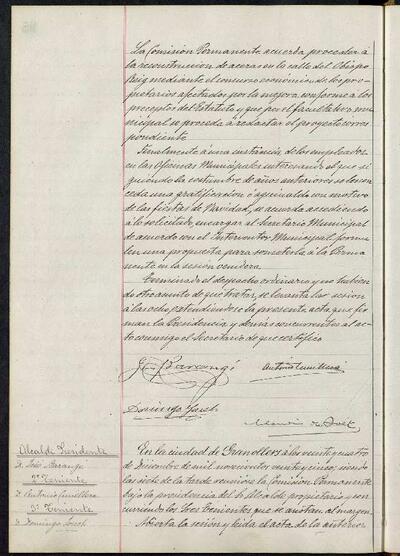 La Comisión Permanente acuerda proceder á
la reconstrucción de aceras en la calle del Obispo
Grivé mediante el concurso económico de los pro-
pietarios afectados por la mejora, conforme a los
preceptos del Estatuto y que por el facultativo mu-
nicipal se proceda á redactar el proyecto corres
pondiente.
Finalmente á una instancia de los empleados
en las Oficinas Municipales interesando el que si
guiendo la costumbre de años anteriores se les con
ceda una gratificación ó aguinaldo con motivo
de las fiestas de Navidad, se acuerda accediendo
á lo solicitado, encargar al Secretario Municipal
de acuerdo con el Interventor Municipal formu
len una propuesta para someterla á la Perma
nente en la sesión venidera.
Terminado el despacho ordinario y no habien
do otro asunto de que tratar, se levanta la sesión
á las ocho, extendiéndose la presente acta que fir
man la Presidencia y demás concurrentes al ac-
to conmigo el Secretario de que certifico.
J. Barangé
Antonio Cumellera
Domingo Joseh
Alcalde Presidente
D. José Barangé
2º Teniente
D. Antonio Cumellera
3º Teniente
D. Domingo Joseh
En la ciudad de Granollers á los veinte y cuatro
de Diciembre de mil novecientos veinte y cinco, siendo
las siete de la tarde reunióse la Comisión Permanente
bajo la presidencia del Sr. Alcalde propietario y con
curriendo los Sres Tenientes que se anotan al margen.
Abierta la sesión y leída el acta de la anterior